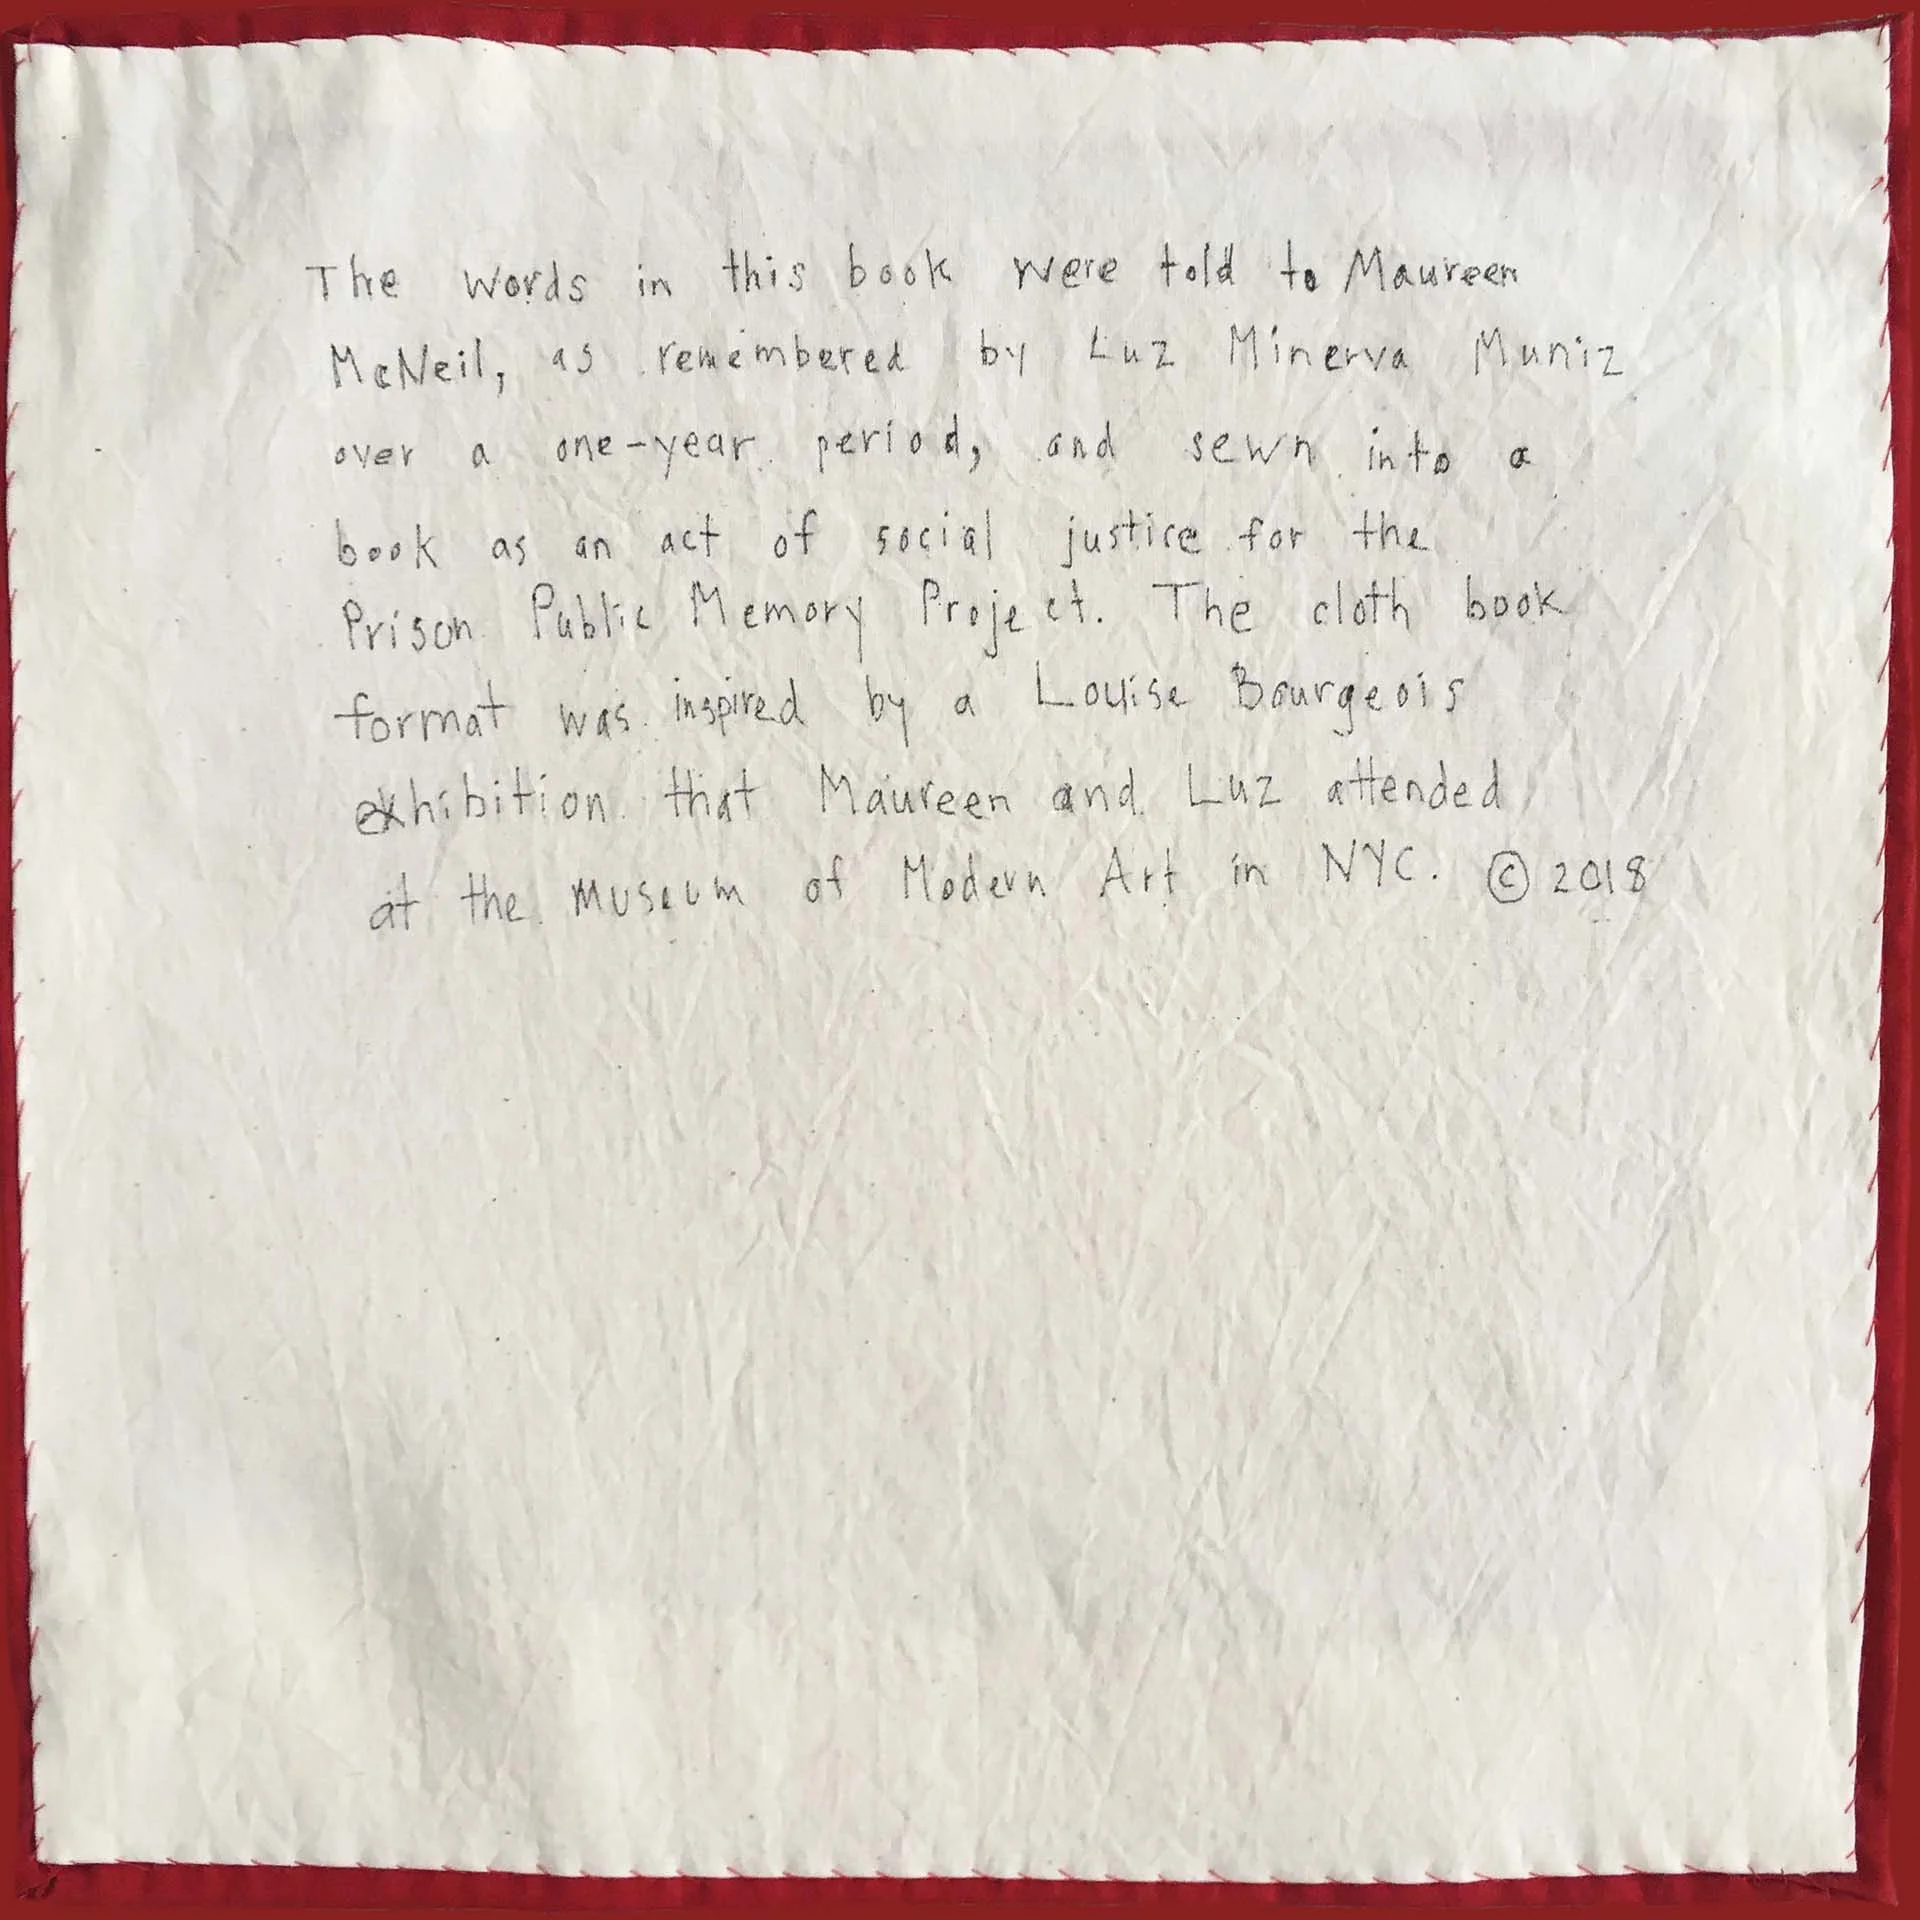 The words in this book were told to Maureen
McNeil, as remembered by Luz Minerva Muniz
over a one-year period, and sewn into a
book as an act of social justice for the
Prison Public Memory Project. The cloth book
format was inspired by a Louise Bourgeois
exhibition that Maureen and Luz attended
at the museum of Modern Art in NYC. © 2018